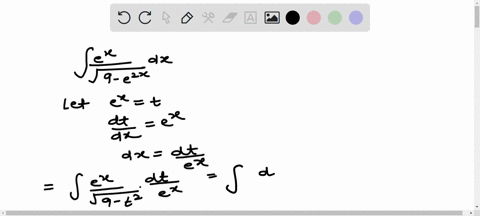 ∫ e^x / √(9-e^{2x}) dx
Let e^x = t
dt/dx = e^x
dx = dt/e^x
= ∫ e^x / √(9-t^2) · dt/e^x = ∫ d